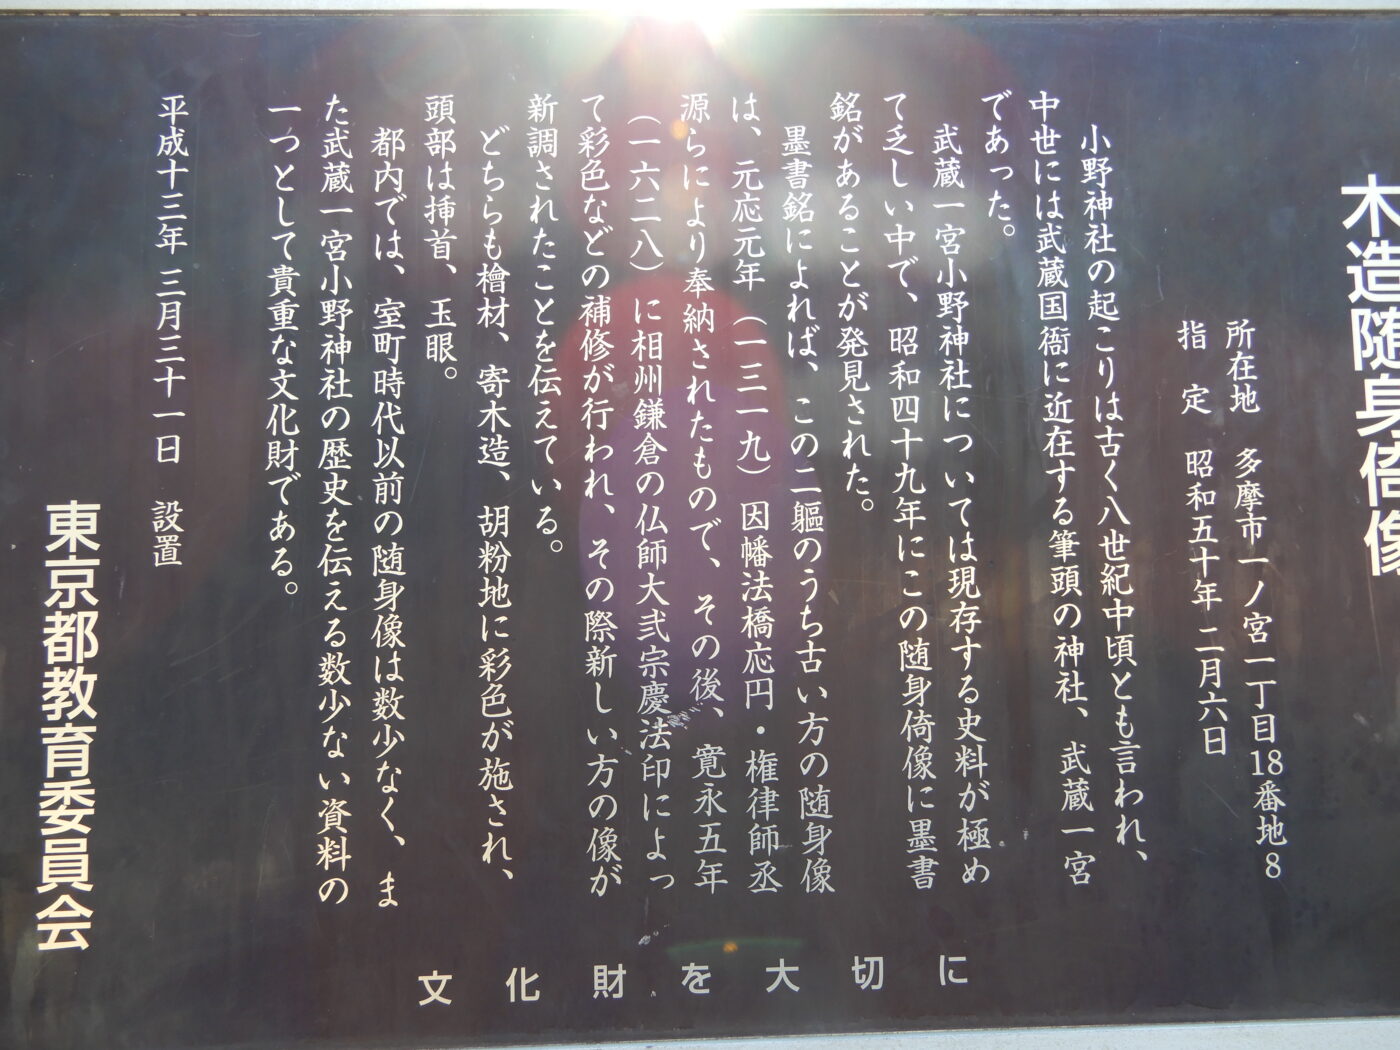 木造随身倚像
所在地　多摩市一ノ宮一丁目18番地8
指　定　昭和五十年　二月六日
小野神社の起こりは古く八世紀中頃とも言われ、
中世には武蔵国衙に近在する筆頭の神社、武蔵一宮
であった。
武蔵一宮小野神社については現存する史料が極め
て乏しい中で、昭和四十九年にこの随身倚像に墨書
銘があることが発見された。
墨書銘によれば、この二軀のうち古い方の随身像
は、元応元年（一三一九）因幡法橋応円・権律師丞
源らにより奉納されたもので、その後、寛永五年
（一六二八）に相州鎌倉の仏師大弐宗慶法印によっ
て彩色などの補修が行われ、その際新しい方の像が
新調されたことを伝えている。
どちらも檜材、寄木造、胡粉地に彩色が施され、
頭部は挿首、玉眼。
都内では、室町時代以前の随身像は数少なく、ま
た武蔵一宮小野神社の歴史を伝える数少ない資料の
一つとして貴重な文化財である。
平成十三年　三月三十一日　設置
東京都教育委員会
文化財を大切に